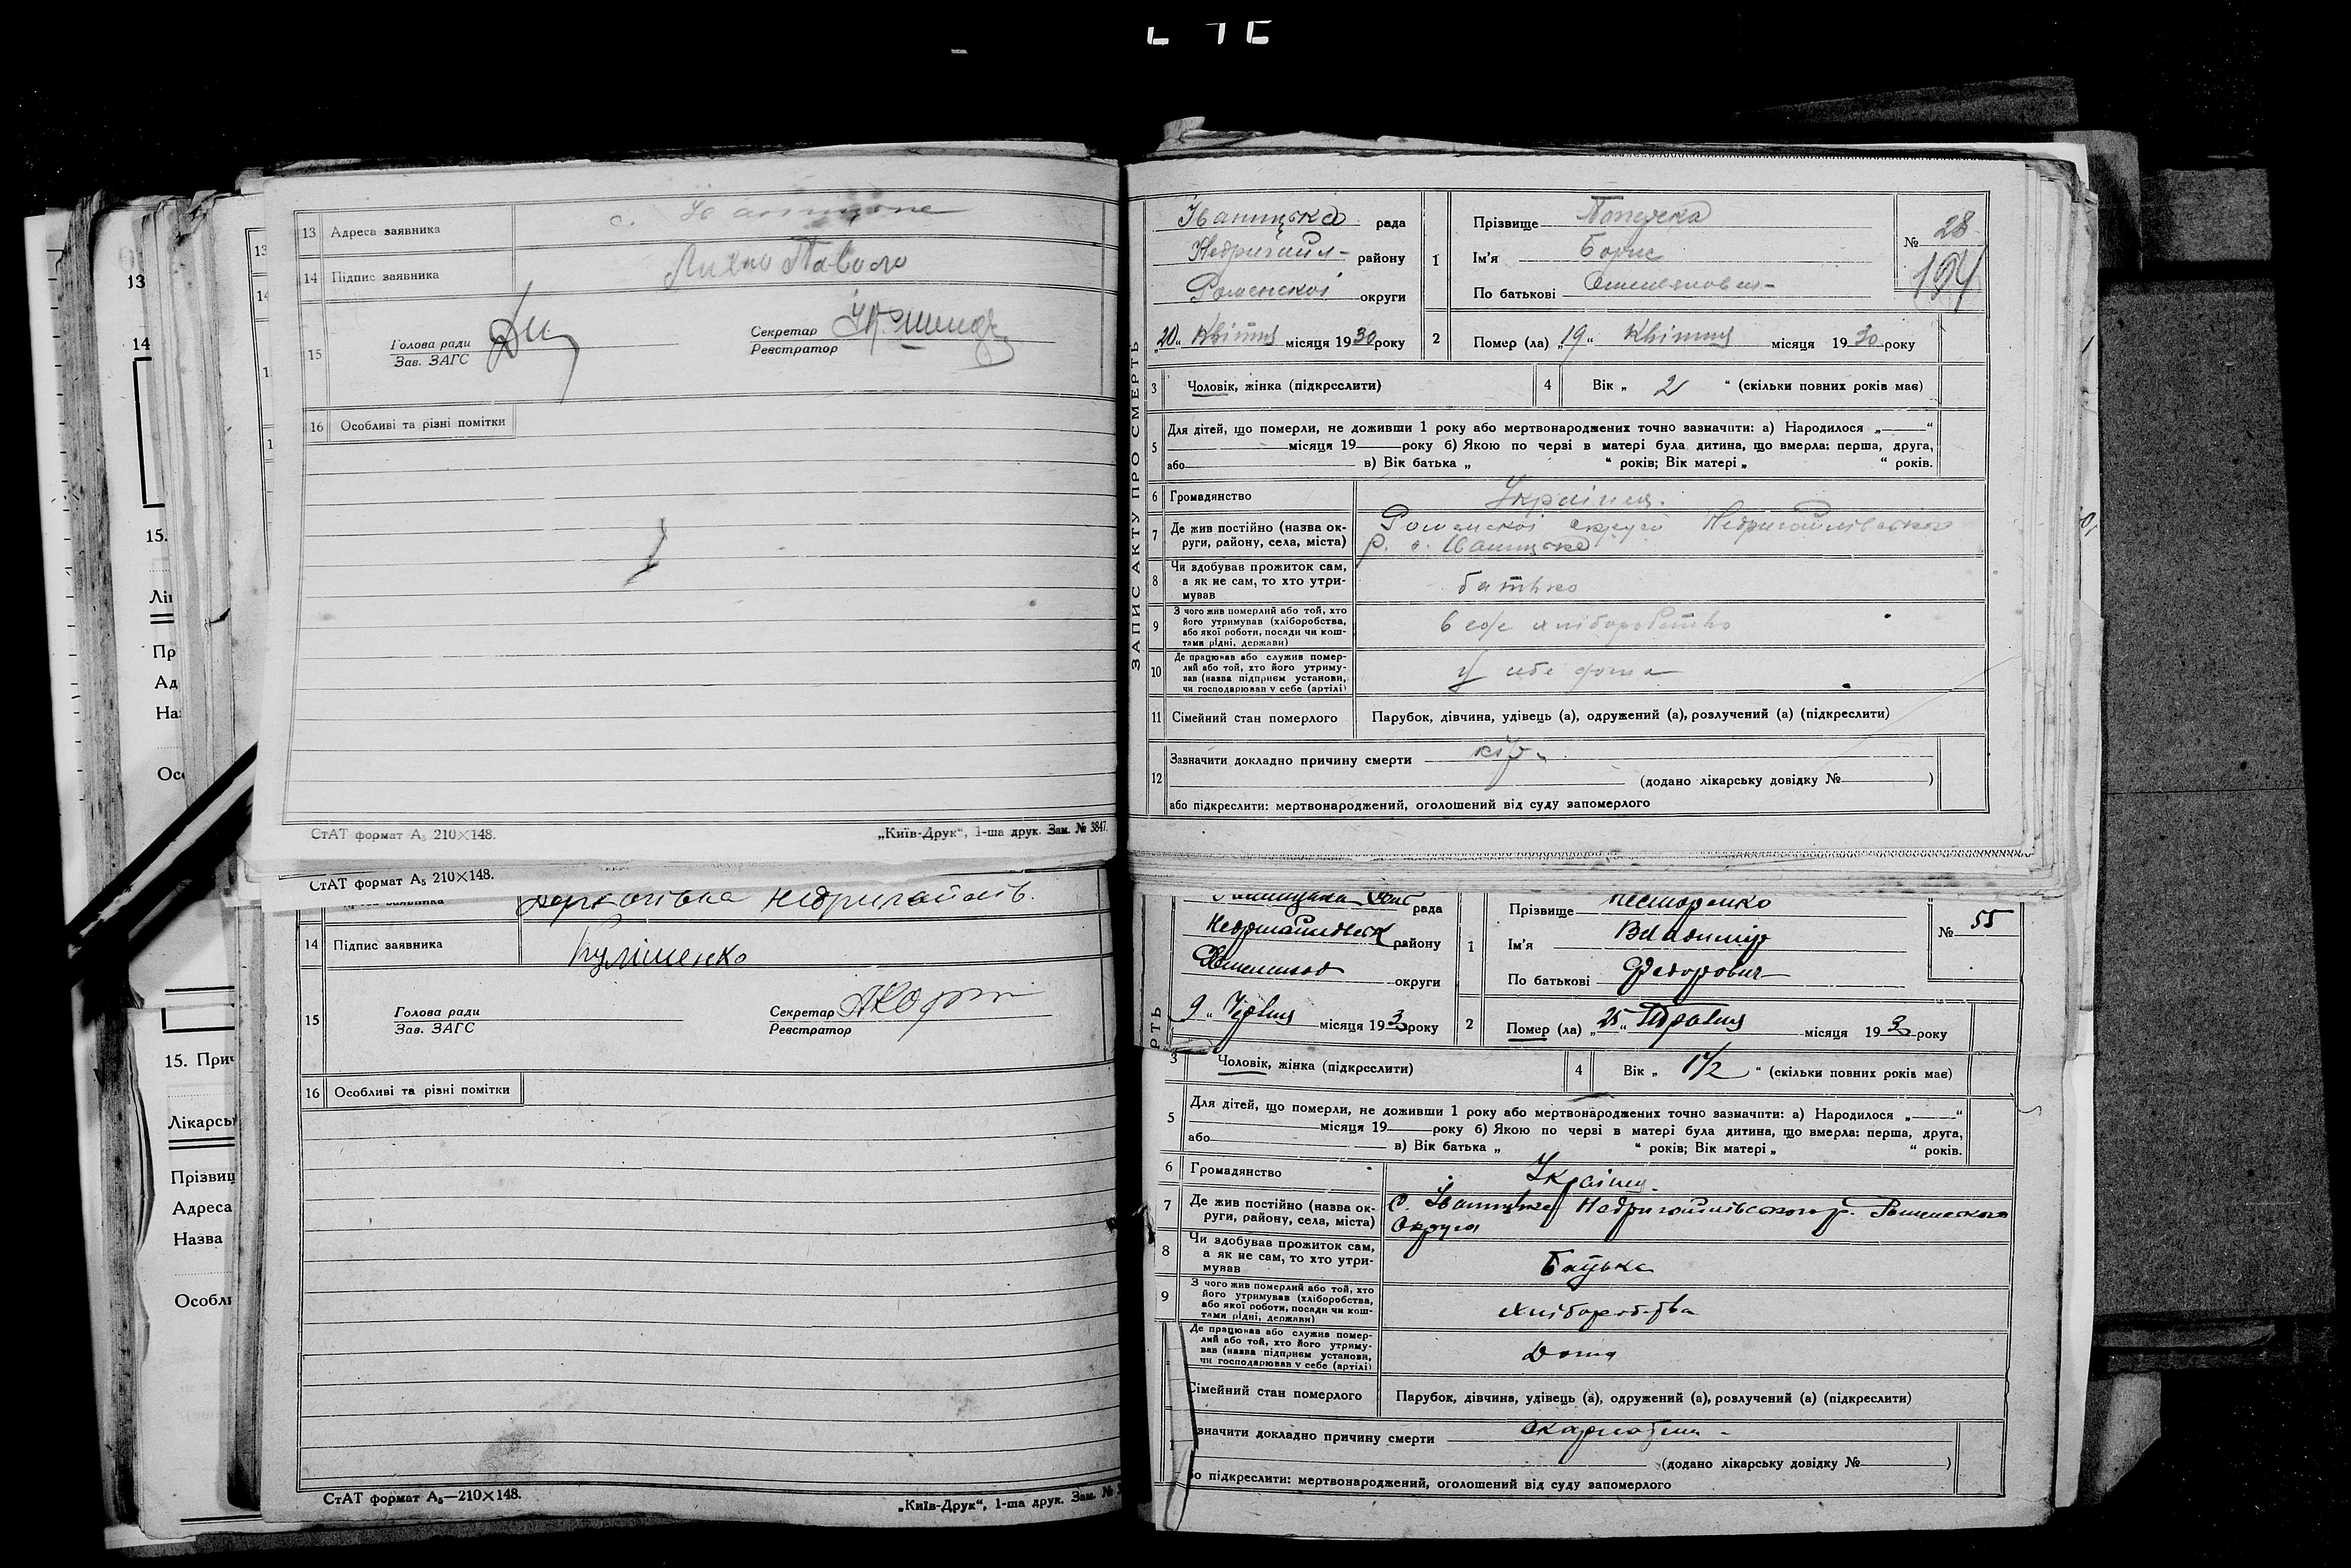 13 Адреса заявника с. Іваницьке
14 Підпис заявника Лихно Павло
15 Голова ради
Зав. ЗАГС
Секретар
Реєстратор
16 Особливі та різні помітки
СтАТ формат А₅ 210×148. „Київ-Друк“, 1-ша друк. Зам. № 3847.
СтАТ формат А₅ 210×148.
Недригайлів.
14 Підпис заявника Кулішенко
15 Голова ради
Зав. ЗАГС
Секретар
Реєстратор
16 Особливі та різні помітки
СтАТ формат А₅—210×148. „Київ-Друк“, 1-ша друк. Зам. №
13
14
15.
Лі
Пр
Ад
На
Ос
15. Прич
Лікарсь
Прізвищ
Адреса
Назва
Особл
ЗАПИС АКТУ ПРО СМЕРТЬ
Іваницька рада
Недригайл- району
Роменської округи
„20“ Квітня місяця 1930 року
1 Прізвище
Ім'я Борис
По батькові
№ 28
194
2 Помер (ла) „19“ Квітня місяця 1930 року
3 Чоловік, жінка (підкреслити)
4 Вік „ 2 “ (скільки повних років має)
5 Для дітей, що померли, не доживши 1 року або мертвонароджених точно вазначити: а) Народилося „ “
місяця 19 року б) Якою по черзі в матері була дитина, що вмерла: перша, друга,
або в) Вік батька „ “ років; Вік матері „ “ років.
6 Громадянство Україня.
7 Де жив постійно (назва ок-
руги, району, села, міста)
Роменської округи Недригайлівського
р. с. Іваницьке
8 Чи здобував прожиток сам,
а як не сам, то хто утри-
мував
батько
9 З чого жив померлий або той, хто
його утримував (хліборобства,
або якої роботи, посади чи кош-
тами рідні, держави)
хліборобство
10 Де працював або служив помер-
лий або той, хто його утриму-
вав (назва підприєм установи,
чи господарював у себе (артілі)
у себе дома
11 Сімейний стан померлого Парубок, дівчина, удівець (а), одружений (а), розлучений (а) (підкреслити)
12 Зазначити докладно причину смерти кір
(додано лікарську довідку № )
або підкреслити: мертвонароджений, оголошений від суду запомерлого
РТЬ
рада
району
округи
9 „ Червня місяця 193 року
1 Прізвище Нестеренко
Ім'я Владимір
По батькові Федорович
№ 55
2 Помер (ла) „25“ Травня місяця 193 року
3 Чоловік, жінка (підкреслити)
4 Вік „ 1½ “ (скільки повних років має)
5 Для дітей, що померли, не доживши 1 року або мертвонароджених точно вазначити: а) Народилося „ “
місяця 19 року б) Якою по черзі в матері була дитина, що вмерла: перша, друга,
або в) Вік батька „ “ років; Вік матері „ “ років.
6 Громадянство Україня.
7 Де жив постійно (назва ок-
руги, району, села, міста)
С. Іваницьке Недригайлівського р. Роменського
Округа
8 Чи здобував прожиток сам,
а як не сам, то хто утри-
мував
Батька
9 З чого жив померлий або той, хто
його утримував (хліборобства,
або якої роботи, посади чи кош-
тами рідні, держави)
хліборобства
Де працював або служив помер-
лий або той, хто його утриму-
вав (назва підприєм установи,
чи господарював у себе (артілі)
Дома
Сімейний стан померлого Парубок, дівчина, удівець (а), одружений (а), розлучений (а) (підкреслити)
значити докладно причину смерти скарлатина
(додано лікарську довідку № )
бо підкреслити: мертвонароджений, оголошений від суду запомерлого